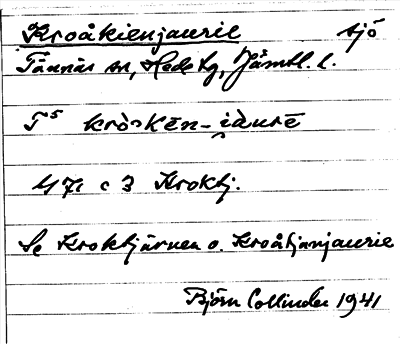 Kroåkienjaurie sjö
Tännäs sn, Hede tg, Jämtl. l.
T⁵ kròɔkēn-i̯àurē
471 c 3 Kroktj.
Se Kroktjärnen o. Kroåtjanjaurie
Björn Collinder 1941